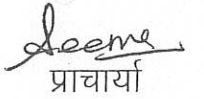 Seema
प्राचार्या